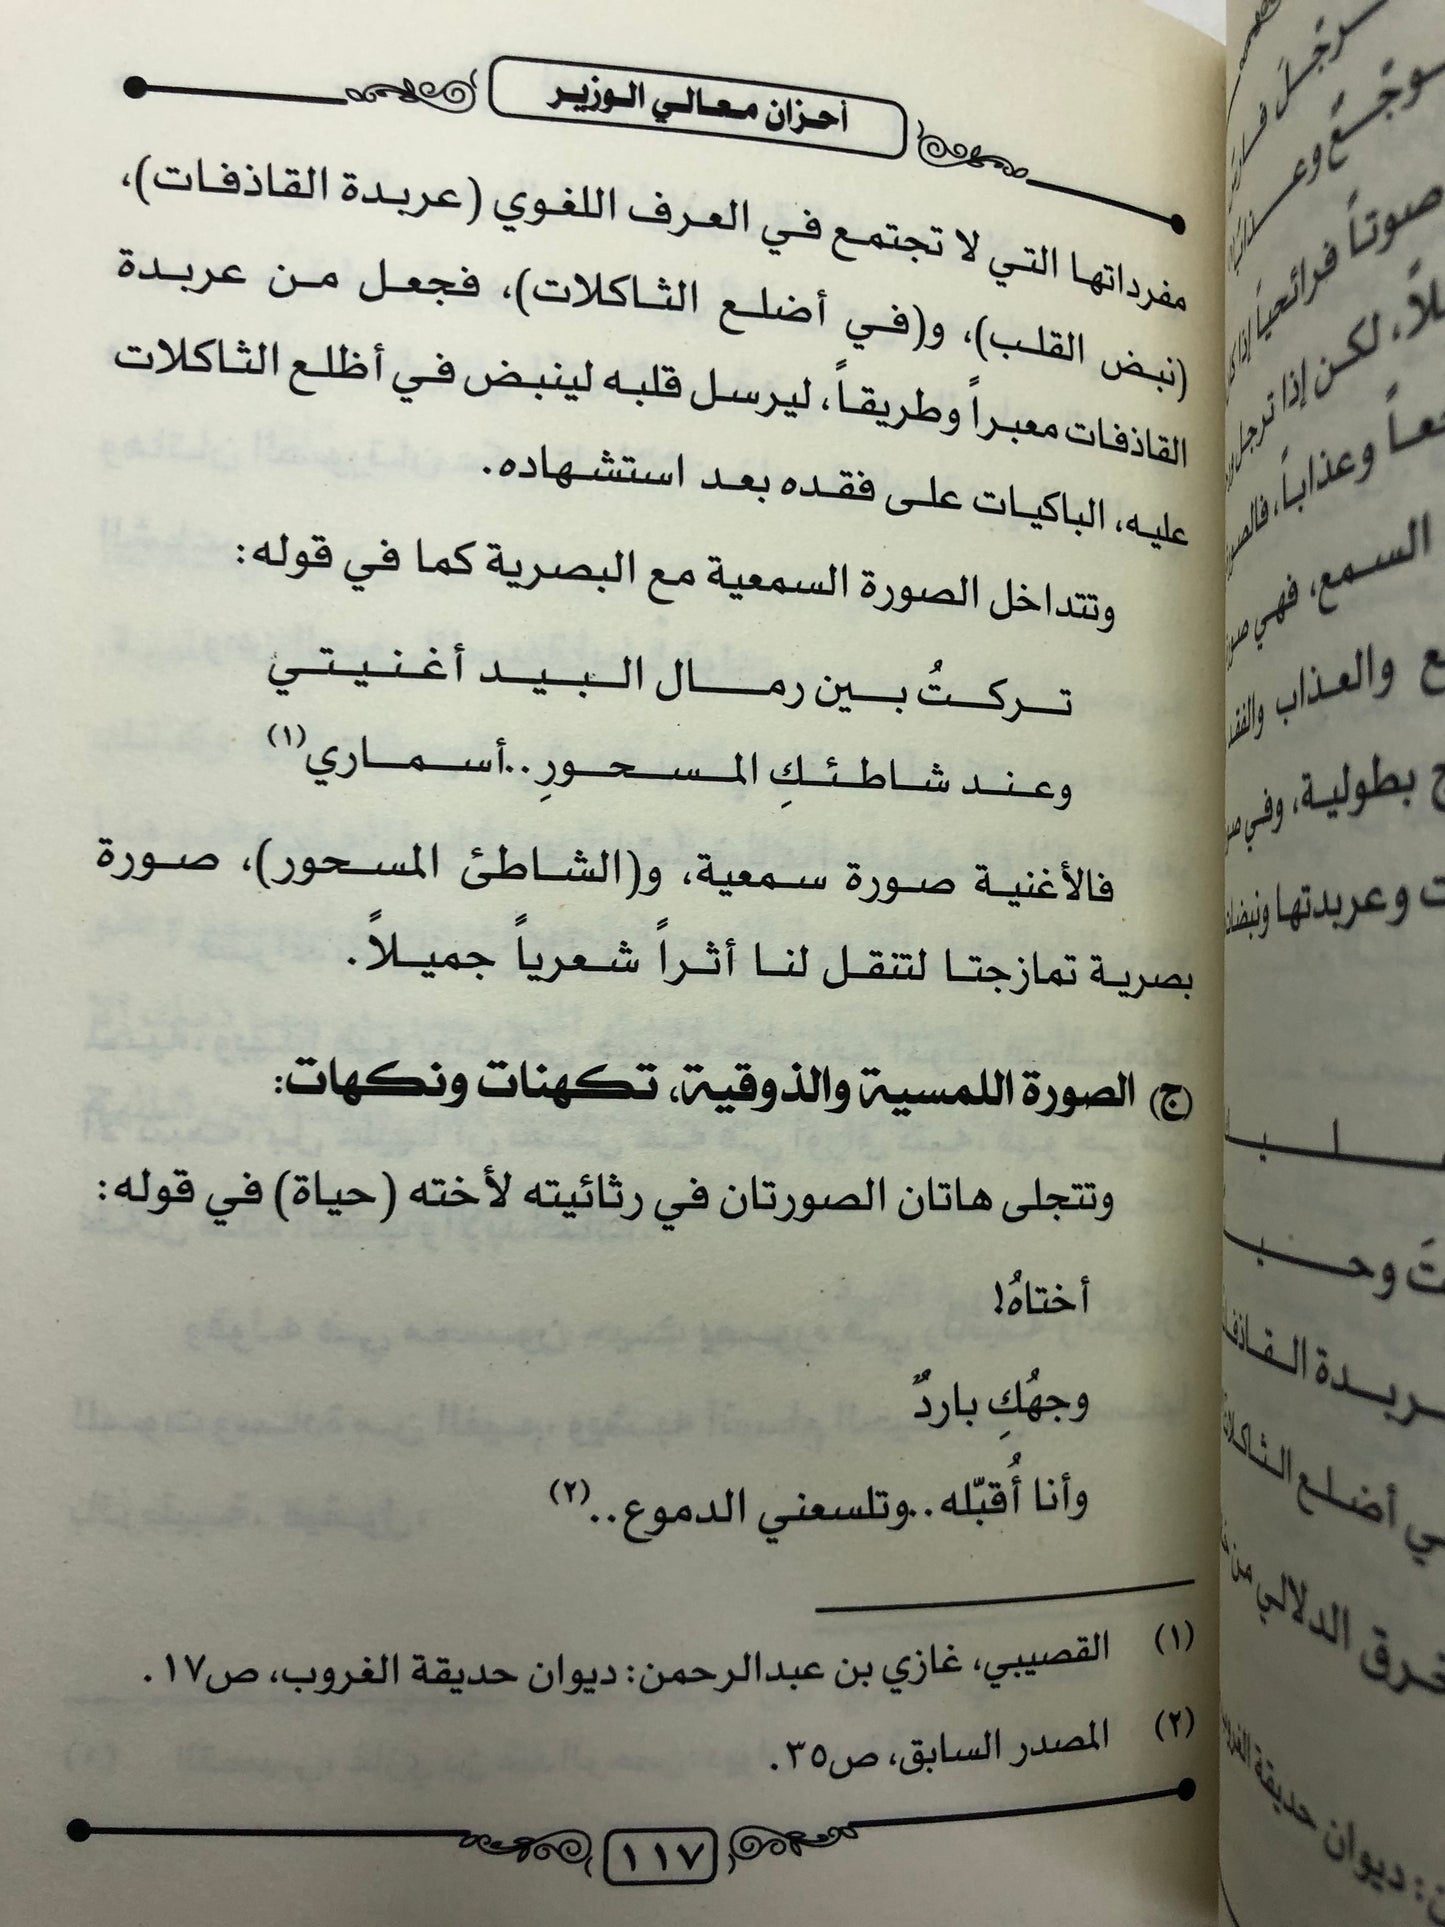 أحزان معالي الوزير
مفرداتها التي لا تجتمع في العرف اللغوي (عربدة القاذفات)،
(نبض القلب)، و(في أضلع الثاكلات)، فجعل من عربدة
القاذفات معبراً وطريقاً، ليرسل قلبه لينبض في أظلع الثاكلات
عليه، الباكيات على فقده بعد استشهاده.
وتتداخل الصورة السمعية مع البصرية كما في قوله:
تركتُ بين رمال البيد أغنيتي
وعند شاطئكِ المسحورِ..أسماري(١)
فالأغنية صورة سمعية، و(الشاطئ المسحور)، صورة
بصرية تمازجتا لتنقل لنا أثراً شعرياً جميلاً.
(ج) الصورة اللمسية والذوقية، تكهنات ونكهات:
وتتجلى هاتان الصورتان في رثائيته لأخته (حياة) في قوله:
أختاهُ!
وجهُكِ باردٌ
وأنا أُقبّله..وتلسعني الدموع..(٢)
(١) القصيبي، غازي بن عبدالرحمن: ديوان حديقة الغروب، ص١٧.
(٢) المصدر السابق، ص٣٥.
١١٧
صوتاً فرائحياً إذا
لكن إذا ترجل
وعذاباً، فالصو
السمع، فهي
والعذاب والفقد
بطولية، وفي
وعربدتها ونبضات
وحب
أضلع الثاكلات
الدلالي من
ديوان حديقة